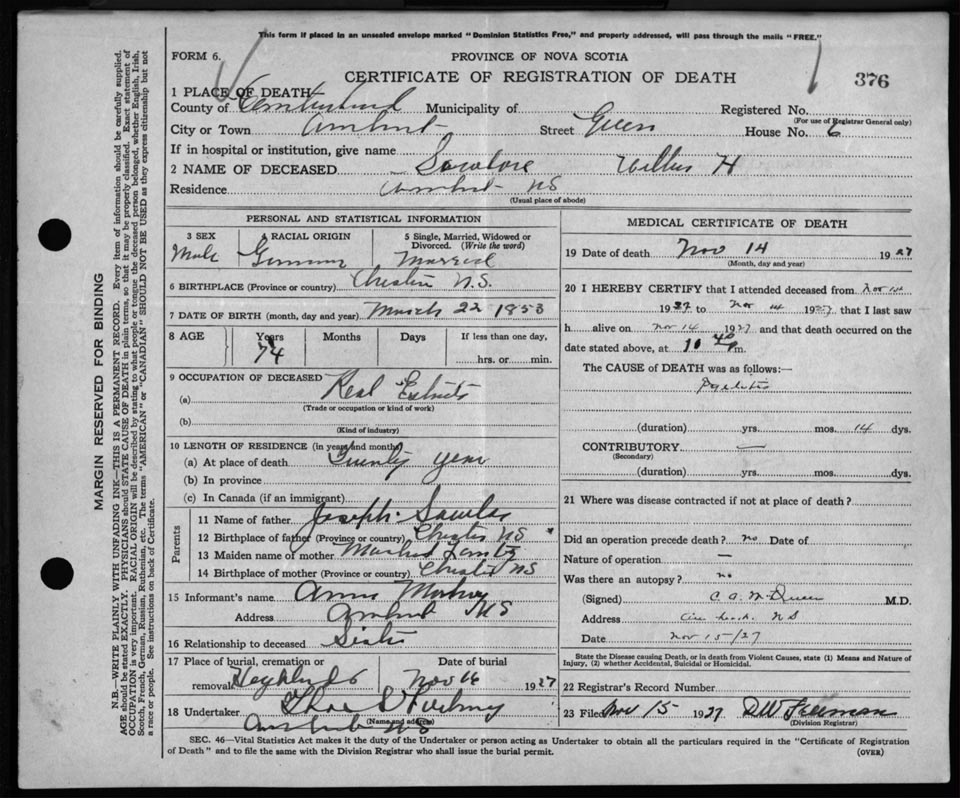 This form if placed in an unsealed envelope marked "Dominion Statistics Free," and properly addressed, will pass through the mails "FREE."
FORM 6.
PROVINCE OF NOVA SCOTIA
CERTIFICATE OF REGISTRATION OF DEATH
376
1 PLACE OF DEATH
County of Cumberland Municipality of Registered No.
(For use of Registrar General only)
City or Town Amherst Street Green House No. 6
If in hospital or institution, give name
2 NAME OF DECEASED Wilbur H
Residence Amherst NS
(Usual place of abode)
PERSONAL AND STATISTICAL INFORMATION
3 SEX 4 RACIAL ORIGIN 5 Single, Married, Widowed or Divorced. (Write the word)
Male German Married
6 BIRTHPLACE (Province or country) Chester N.S.
7 DATE OF BIRTH (month, day and year) March 22 1853
8 AGE Years Months Days If less than one day,
74 hrs. or min.
9 OCCUPATION OF DECEASED
(a) Real Estate
(Trade or occupation or kind of work)
(b)
(Kind of industry)
10 LENGTH OF RESIDENCE (in years and months)
(a) At place of death Twenty year
(b) In province
(c) In Canada (if an immigrant)
Parents
11 Name of father Joseph
12 Birthplace of father (Province or country) Chester NS
13 Maiden name of mother
14 Birthplace of mother (Province or country) Chester NS
15 Informant's name Annie
Address Amherst NS
16 Relationship to deceased Sister
17 Place of burial, cremation or removal Date of burial
Nov 16 1927
18 Undertaker
(Name and address)
Amherst NS
MEDICAL CERTIFICATE OF DEATH
19 Date of death Nov 14 1927
(Month, day and year)
20 I HEREBY CERTIFY that I attended deceased from Nov 1st
1927 to Nov 14 1927, that I last saw
h alive on Nov 14 1927 and that death occurred on
date stated above, at 10 m.
The CAUSE of DEATH was as follows:—
(duration) yrs. mos. 14 dys.
CONTRIBUTORY —
(Secondary)
(duration) yrs. mos. dys.
21 Where was disease contracted if not at place of death?
Did an operation precede death? no Date of
Nature of operation —
Was there an autopsy? no
(Signed) M.D.
Address Amherst NS
Date Nov 15/27
State the Disease causing Death, or in death from Violent Causes, state (1) Means and Nature of Injury, (2) whether Accidental, Suicidal or Homicidal.
22 Registrar's Record Number
23 Filed Nov 15 1927 DW Freeman
(Division Registrar)
SEC. 46—Vital Statistics Act makes it the duty of the Undertaker or person acting as Undertaker to obtain all the particulars required in the "Certificate of Registration
of Death" and to file the same with the Division Registrar who shall issue the burial permit. (OVER)
MARGIN RESERVED FOR BINDING
N.B.—WRITE PLAINLY WITH UNFADING INK—THIS IS A PERMANENT RECORD. Every item of information should be carefully supplied.
AGE should be stated EXACTLY. PHYSICIANS should STATE CAUSE OF DEATH in plain terms, so that it may be properly classified. Exact statement of
OCCUPATION is very important. RACIAL ORIGIN will be described by stating to what people or tongue the deceased person belonged, whether English, Irish,
Scotch, French, German, Russian, Ruthenian, etc. The terms "AMERICAN" or "CANADIAN" SHOULD NOT BE USED as they express citizenship but not
a race or people. See instructions on back of Certificate.